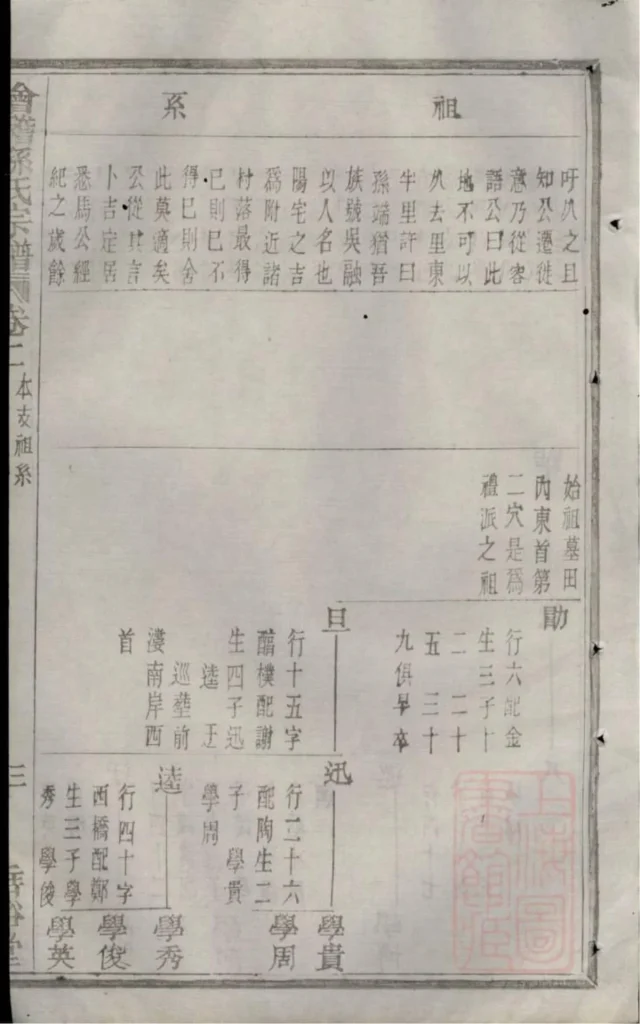 祖系
吁从之且
知公遷徙
意乃從容
語公曰此
地不可以
从去里東
牛里許曰
孫端猶吾
族號吳融
以人名也
陽宅之吉
為附近諸
村落最得
已則已不
得已則舍
此莫適矣
公從其言
卜吉定居
悉焉公經
紀之歲餘
始祖墓田
內東首第
二穴是為
禮派之祖
勛
行六配金
生三子十
二 二十
五 三十
九俱早卒
旦
行十五字
醕樸配謝
生四子迅
逵 𨒌
巡塟前
濲南岸西
首
迅
行二十六
配陶生二
子 學貴
學周
逵
行四十字
西橋配鄭
生三子學
秀 學俊
學貴
學周
學秀
學俊
學英
會稽孫氏宗譜 卷二 本支祖系 三
上海圖書館藏